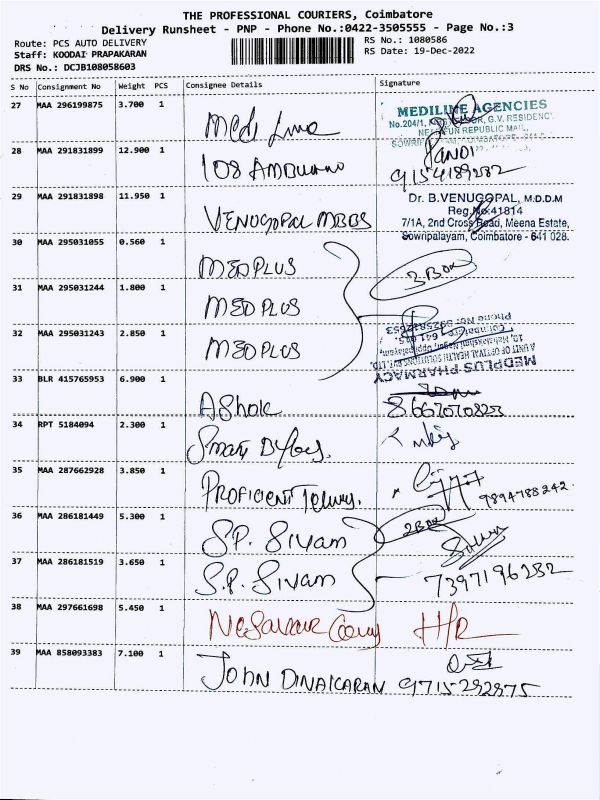 THE PROFESSIONAL COURIERS, Coimbatore
Delivery Runsheet - PNP - Phone No.:0422-3505555 - Page No.:3
Route: PCS AUTO DELIVERY
RS No.: 1080586
Staff: KOODAI PRAPAKARAN
RS Date: 19-Dec-2022
DRS No.: DCJB108058603
S No Consignment No Weight PCS Consignee Details Signature
27 MAA 296199875 3.700 1
MEDILINE AGENCIES
Medi Line
28 MAA 291831899 12.900 1
PANDI
108 AMBULANC
9154189282
29 MAA 291831898 11.950 1
Dr. B.VENUGOPAL, M.D.D.M
Reg.No:41814
VENUGOPAL MBBS
7/1A, 2nd Cross Road, Meena Estate,
Sowripalayam, Coimbatore - 641 028.
30 MAA 295031055 0.560 1
MEDPLUS
3 Box
31 MAA 295031244 1.800 1
MEDPLUS
32 MAA 295031243 2.850 1
MEDPLUS
MEDPLUS PHARMACY
A UNIT OF OPTIVAL HEALTH SOLUTIONS PVT. LTD.
33 BLR 415765953 6.900 1
Ashok
8667070823
34 RPT 5184094 2.300 1
Smart
35 MAA 287662928 3.850 1
PROFICIENT
9894788242
36 MAA 286181449 5.300 1
S.P. Sivam
2 Box
37 MAA 286181519 3.650 1
S.P. Sivam
7397196282
38 MAA 297661698 5.450 1
H/R
39 MAA 858093383 7.100 1
JOHN DINAKARAN 9715292975